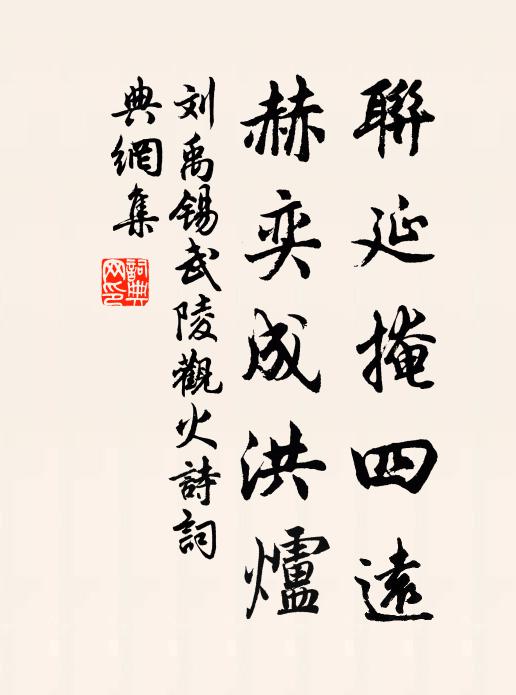 聯延掩四遠
赫奕成洪爐
刘禹锡武陵觀火詩詞
典網集
詞典网印